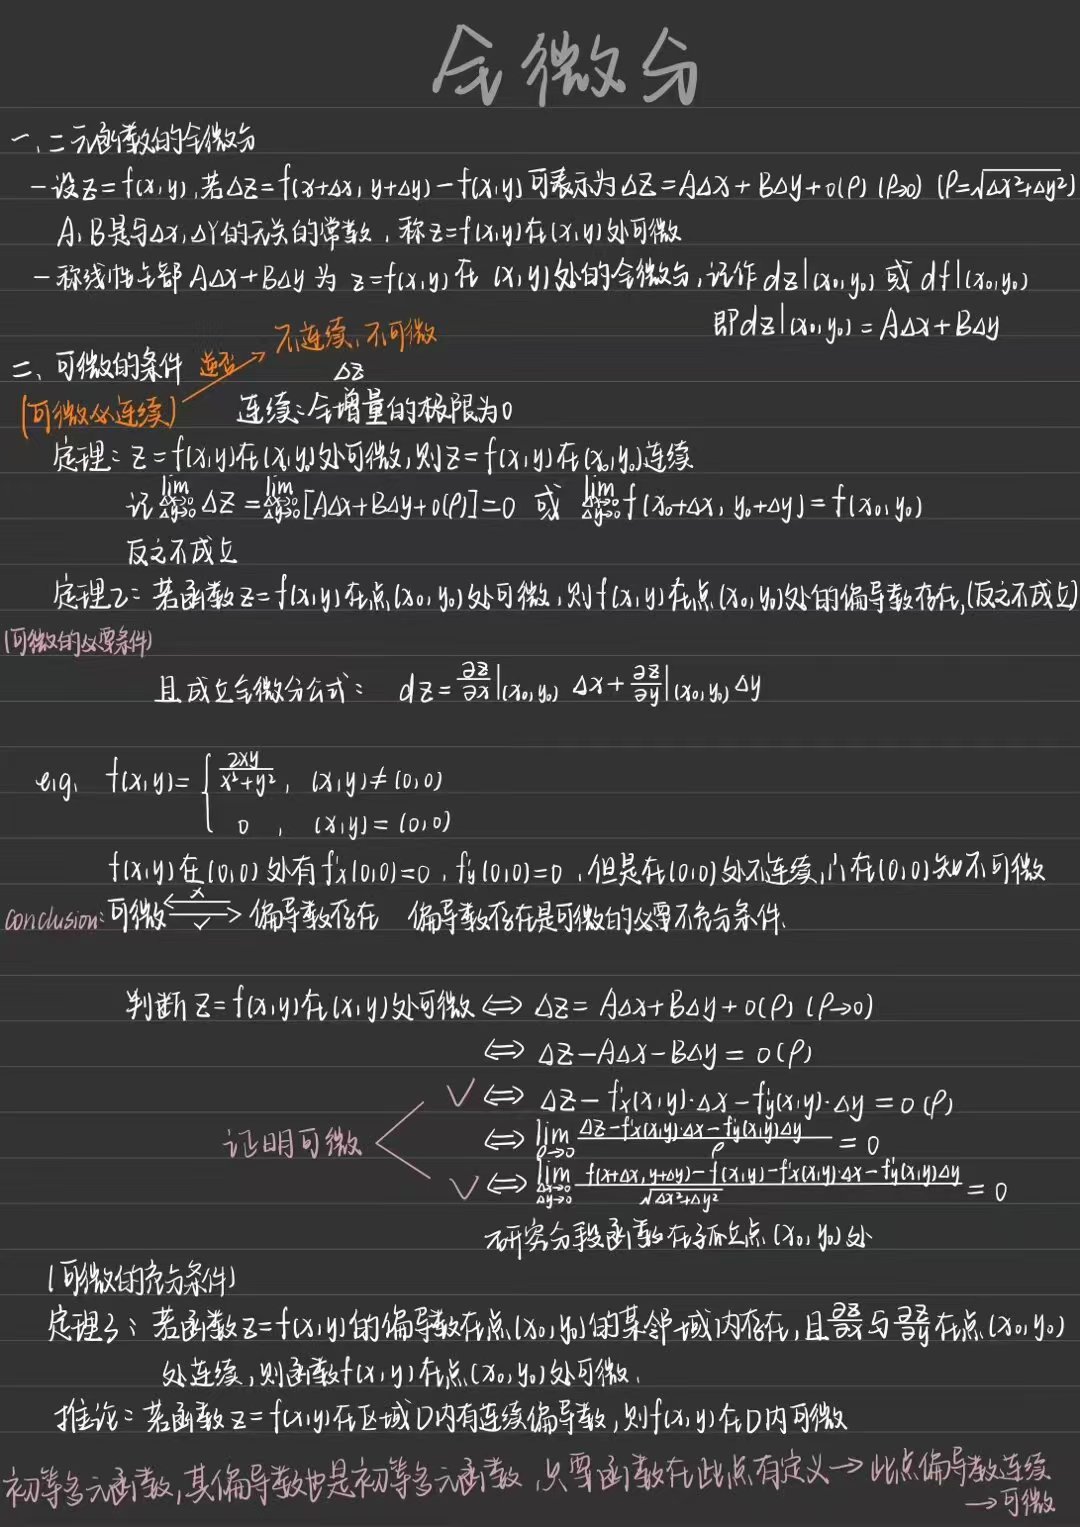 全微分
一、二元函数的全微分
－设z=f(x,y),若Δz=f(x+Δx, y+Δy)－f(x,y)可表示为Δz=AΔx+BΔy+o(ρ) (ρ→0) (ρ=√Δx²+Δy²)
A,B是与Δx,ΔY的无关的常数，称z=f(x,y)在(x,y)处可微
－称线性主部AΔx+BΔy为 z=f(x,y)在 (x,y)处的全微分,记作dz|(x₀,y₀) 或 df|(x₀,y₀)
即dz|(x₀,y₀)=AΔx+BΔy
不连续,不可微
二、可微的条件 逆否
Δz
(可微必连续)
连续:全增量的极限为0
定理: z=f(x,y)在(x,y)处可微,则z=f(x,y)在(x₀,y₀)连续
记 lim Δx→0 Δy→0 Δz = lim Δx→0 Δy→0 [AΔx+BΔy+o(ρ)]=0 或 lim Δx→0 Δy→0 f(x₀+Δx, y₀+Δy)=f(x₀,y₀)
反之不成立
定理2: 若函数z=f(x,y)在点(x₀,y₀)处可微,则f(x,y)在点(x₀,y₀)处的偏导数存在,(反之不成立)
(可微的必要条件)
且成立全微分公式: dz=∂z/∂x|(x₀,y₀) Δx+∂z/∂y|(x₀,y₀)Δy
e.g. f(x,y)={ 2xy/x²+y², (x,y)≠(0,0)
0, (x,y)=(0,0)
f(x,y)在(0,0)处有f'x(0,0)=0, f'y(0,0)=0,但是在(0,0)处不连续,∴在(0,0)处不可微
conclusion:可微 ×⟵ ⟶✓ 偏导数存在 偏导数存在是可微的必要不充分条件.
判断z=f(x,y)在(x,y)处可微⟺Δz=AΔx+BΔy+o(ρ) (ρ→0)
⟺Δz－AΔx－BΔy=o(ρ)
✓⟺Δz－f'x(x,y)·Δx－f'y(x,y)·Δy=o(ρ)
证明可微
⟺lim ρ→0 Δz－f'x(x,y)·Δx－f'y(x,y)Δy/ρ=0
✓⟺lim Δx→0 Δy→0 f(x+Δx,y+Δy)－f(x,y)－f'x(x,y)·Δx－f'y(x,y)Δy/√Δx²+Δy²=0
研究分段函数在孤立点(x₀,y₀)处
(可微的充分条件)
定理3: 若函数z=f(x,y)的偏导数在点(x₀,y₀)的某邻域内存在,且∂z/∂x与∂z/∂y在点(x₀,y₀)
处连续,则函数f(x,y)在点(x₀,y₀)处可微.
推论: 若函数z=f(x,y)在区域D内有连续偏导数,则f(x,y)在D内可微
初等多元函数,其偏导数也是初等多元函数,只要函数在此点有定义→此点偏导数连续
→可微